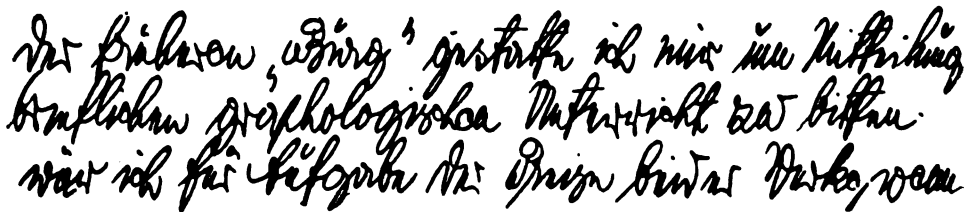 der früheren „Burg" gestatte ich mir um Mitteilung
brieflichen graphologischen Unterricht zu bitten.
wär ich für Aufgabe der Preise beider Werke, wenn